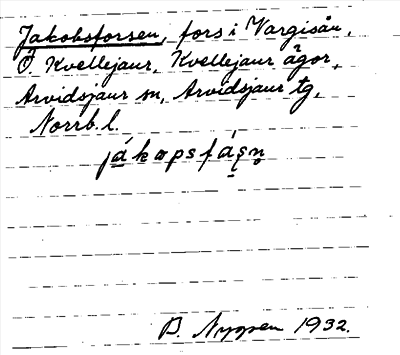 Jakobsforsen, fors i Vargisån,
Ö. Kvellejaur, Kvellejaur ägor,
Arvidsjaur sn, Arvidsjaur tg,
Norrb. l.
1932.